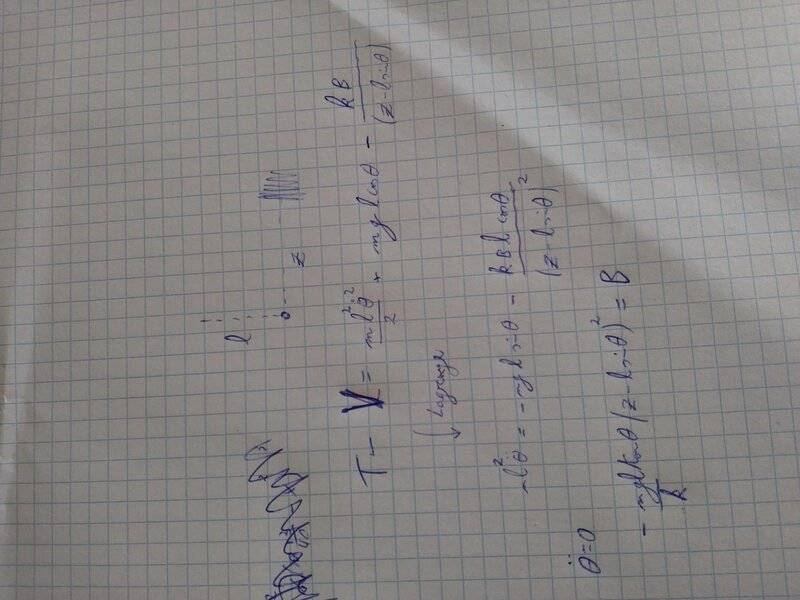 l
z
T - V = \frac{m l^2 \dot{θ}^2}{2} + mgl cosθ - \frac{kB}{(z - l sinθ)}
↓ Lagrange
ml^2 \ddot{θ} = -mgl sinθ - \frac{kBl cosθ}{(z - l sinθ)^2}
\ddot{θ} = 0
- \frac{mgl tanθ}{k} (z - l sinθ)^2 = B